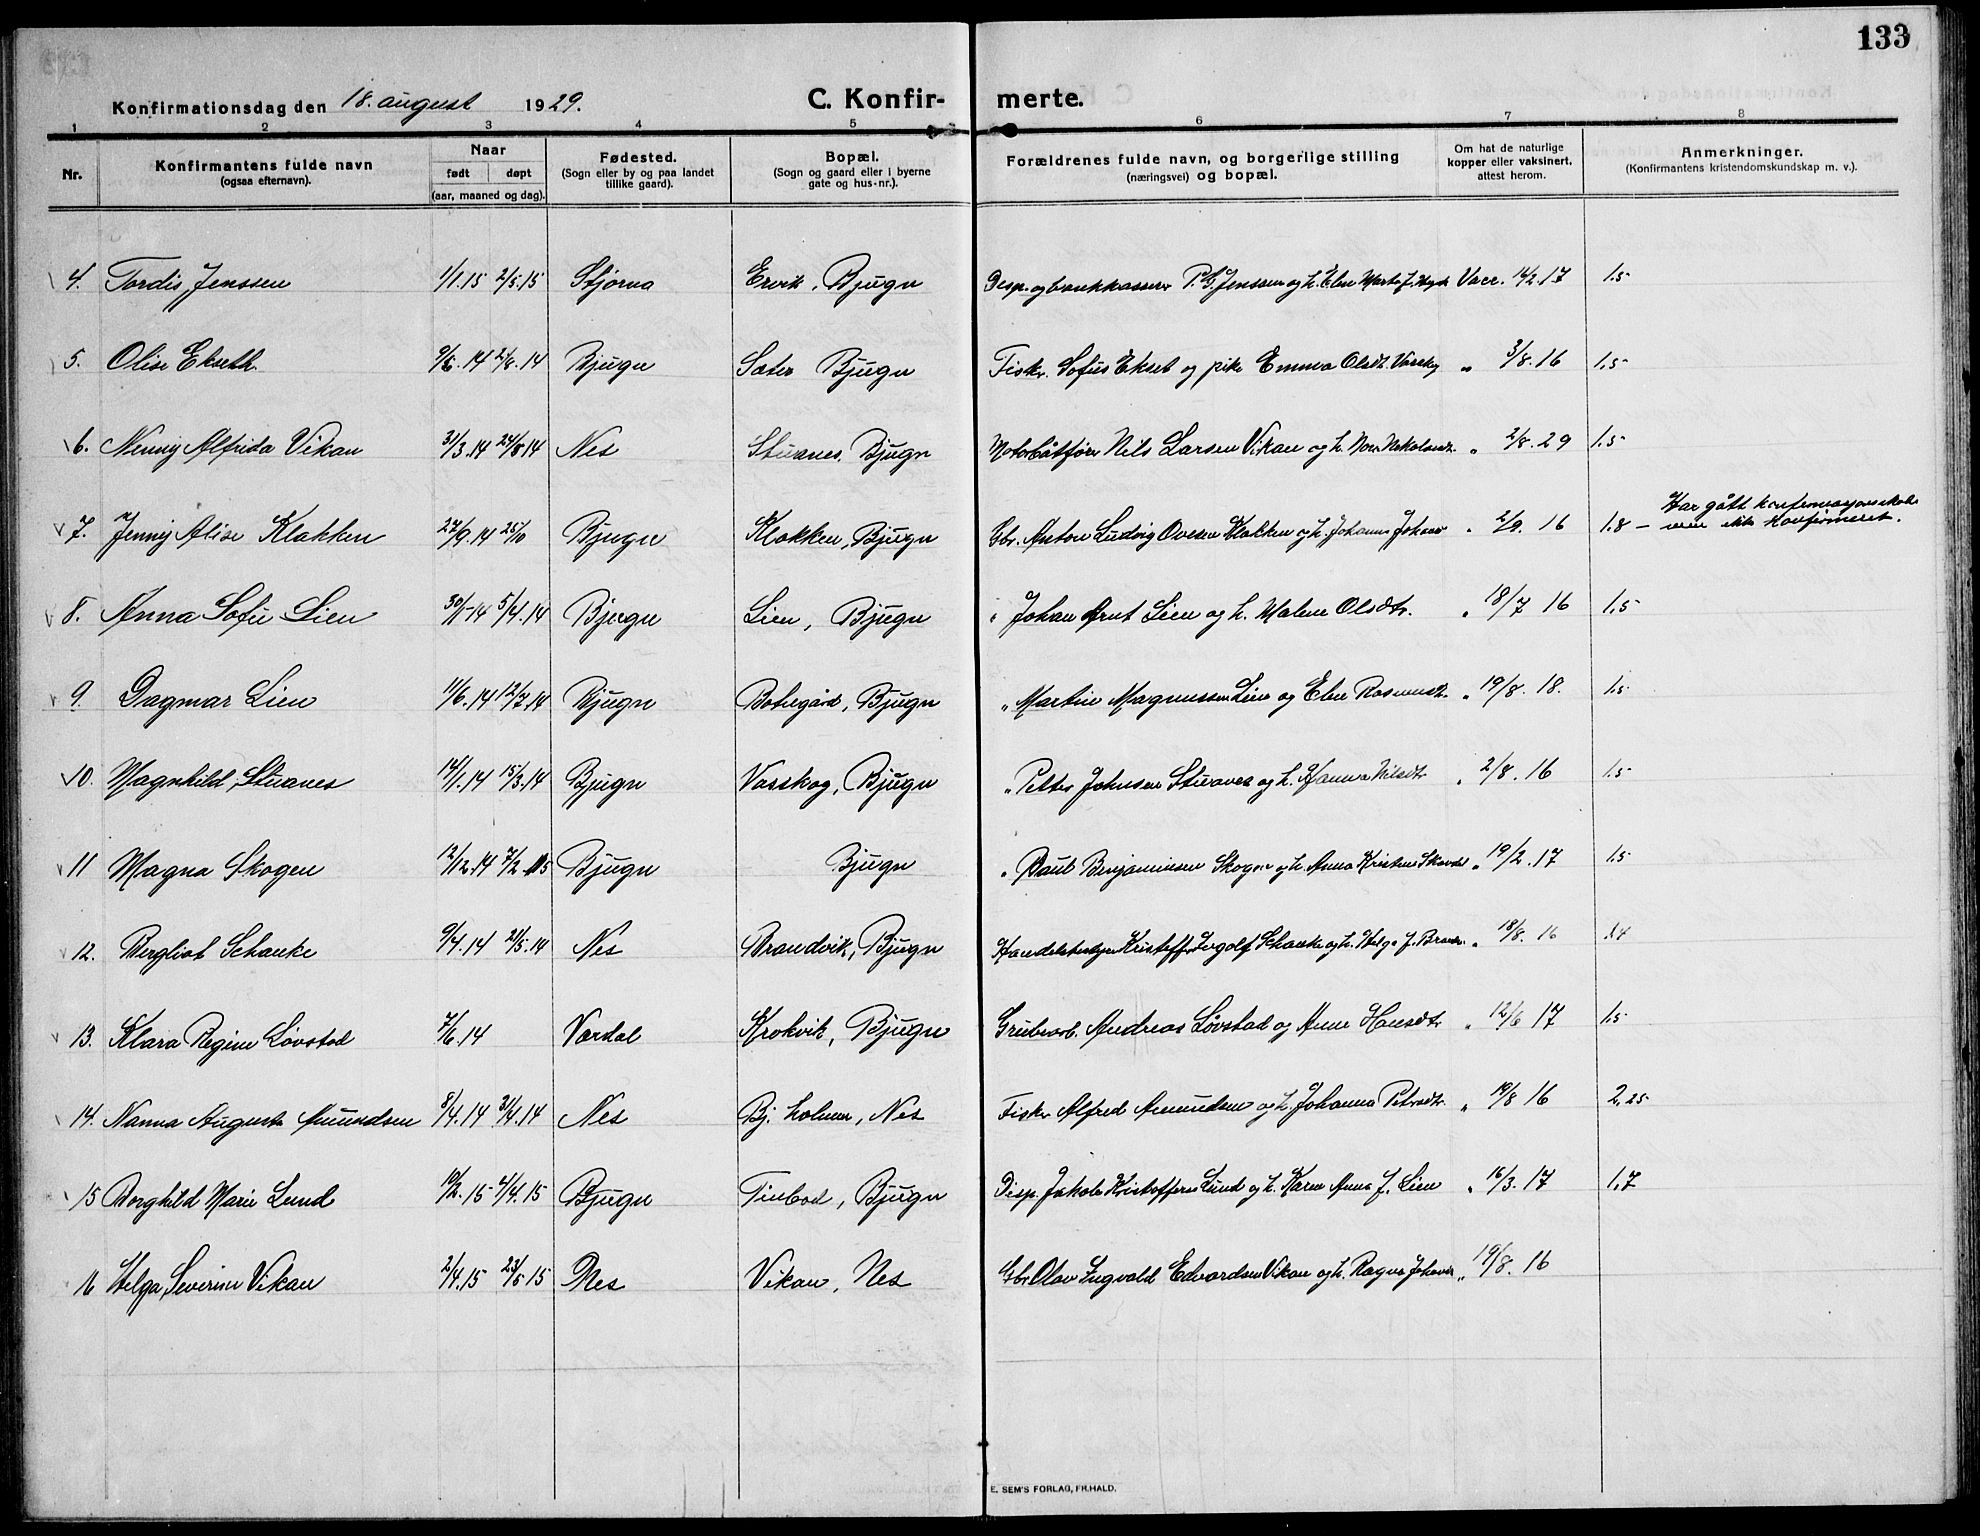 133
Konfirmationsdag den 18. august 1929.
C. Konfir- merte.
1 2 3 4 5 6 7 8
Nr.
Konfirmantens fulde navn
(ogsaa efternavn).
Naar
født døpt
(aar, maaned og dag).
Fødested.
(Sogn eller by og paa landet
tillike gaard).
Bopæl.
(Sogn og gaard eller i byerne
gate og hus-nr.).
Forældrenes fulde navn, og borgerlige stilling
(næringsvei) og bopæl.
Om hat de naturlige
kopper eller vaksinert,
attest herom.
Anmerkninger.
(Konfirmantens kristendomskundskap m. v.).
4. Tordis Jenssen 1/1.15 2/5.15 Stjørna Ervik, Bjugn Disp. og bankkasserer P. G. Jenssen og h. Vacc. 14/2.17 1.5
5. Olise Ekseth 9/5.14 2/8.14 Bjugn Sæter Bjugn Fisker Sofus Ekset og pike Emma Olsdt. " 3/8.16 1.5
6. Nenny Alfrida Vikan 31/3.14 24/8 14 Nes Stuanes, Bjugn Motorbåtfører Nils Larsen Vikan og h. " 2/8.29 1.5
7. Jenny Alise Klakken 27/9.14 25/10 Bjugn Klakken, Bjugn Gbr. Anton Ludvig Ovesen Klakken og h. Johanna " 2/9. 16 1.8 – Har gått konfirmasjonsskole
men ikke konfirmeret.
8. Anna Sofie Lien 30/1-14 5/4.14 Bjugn Lien, Bjugn " Johan Arnt Lien og h. Malene Olsdtr. " 18/7 16 1.5
9 Dagmar Lien 11/6.14 12/7.14 Bjugn Botngård, Bjugn " Martin Magnussen Lien og Elen Rasmusdt. " 19/8. 18. 1.5
10. Magnhild Stuanes 14/1.14 15/3.14 Bjugn Vasskog, Bjugn " Petter Johnsen Stuanes og h. Hanna Nilsdtr " 2/8.16 1.5
11 Magna Skogen 12/12.14 7/2.15 Bjugn Bjugn " Paul Benjaminsen Skogen og h. Anna Kristine " 19/2.17 1.5
12. Bergliot Schanke 9/4.14 21/5.14 Nes Brandvik, Bjugn Kristoffer Ingolf Schanke og h. Helga J. " 18/8. 16 1.4
13. Klara Regine Løvstad 7/6.14 Værdal Krokvik, Bjugn Grubearb. Andreas Løvstad og Anne Hansdtr " 12/6 17 1.5
14. Nanna Augusta Amundsen 8/4.14 3/4.14 Nes Bj. holmen, Nes Fisker Alfred Amundsen og h. Johanna Petersdtr. " 19/8 16 2,25
15 Borghild Marie Lund 10/2.15 4/4.15 Bjugn Tinbod, Bjugn Disp. Jakob Kristoffersen Lund og h. Karen Anna J. Lien " 16/3.17 1,7
16 Helga Severine Vikan 2/4.15 23/5 15 Nes Vikan, Nes Gbr. Olav Ingvald Edvardsen Vikan og h. Ragna " 19/8. 16
E. SEM'S FORLAG, FR.HALD.